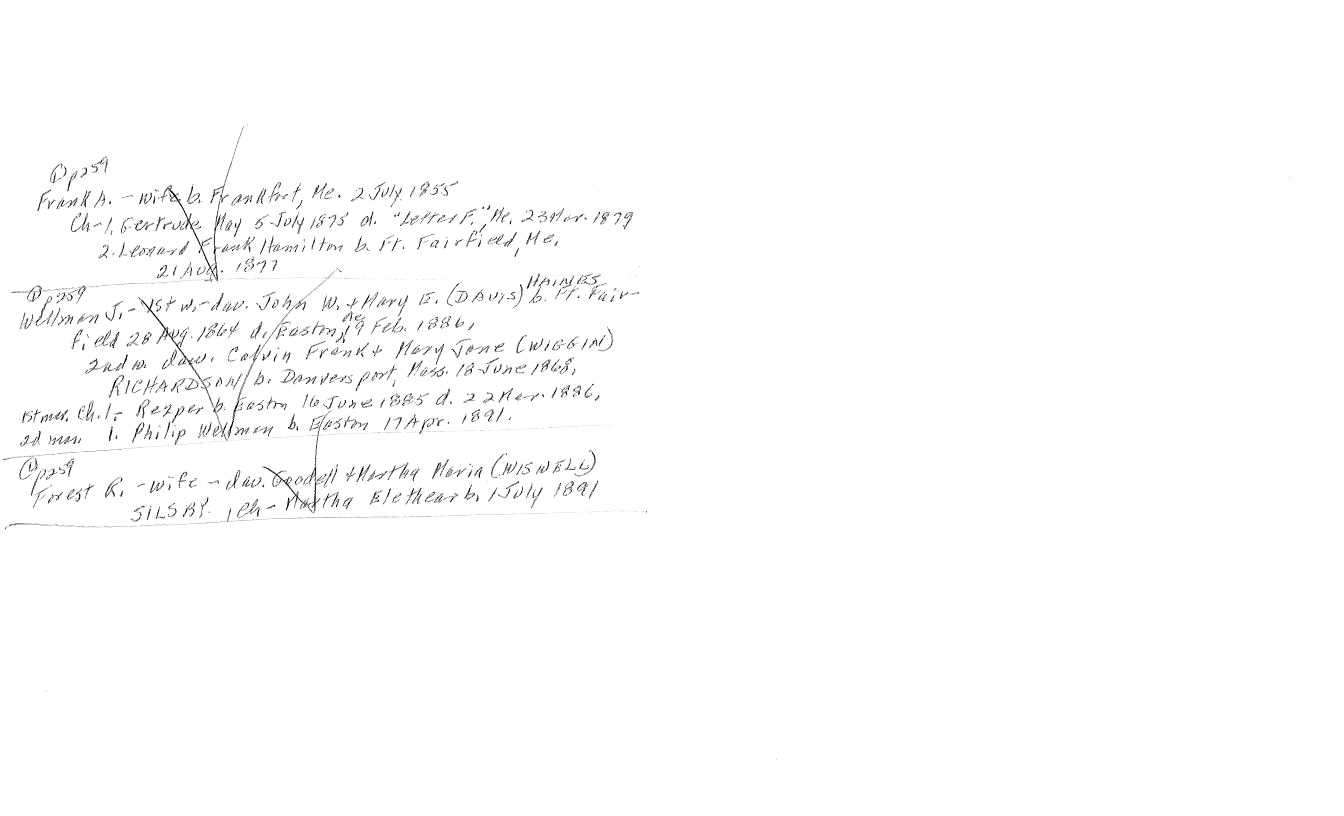 ① p259
Frank A. - wife b. Frankfort, Me. 2 July 1855
Ch-1. Gertrude May 5 July 1875 d. "Letter F.", Me. 23 Mar. 1879
2. Leonard Frank Hamilton b. Ft. Fairfield, Me.
21 Aug. 1877
① p259
HAINES
Wellman J. - 1st w. - dau. John W. + Mary E. (DAVIS) b. Ft. Fair-
field 28 Aug. 1864 d. Easton, Me. 19 Feb. 1886,
2nd w. dau. Calvin Frank + Mary Jane (WIGGIN)
RICHARDSON b. Danversport, Mass. 18 June 1868,
1st mar. Ch. 1. - b. Easton 16 June 1885 d. 22 Mar. 1886,
2d mar. 1. Philip Wellman b. Easton 17 Apr. 1891.
① p259
Forest R. - wife - dau. Goodell + Martha Maria (WISWELL)
SILSBY. 1 Ch - Martha Elethear b. 1 July 1891